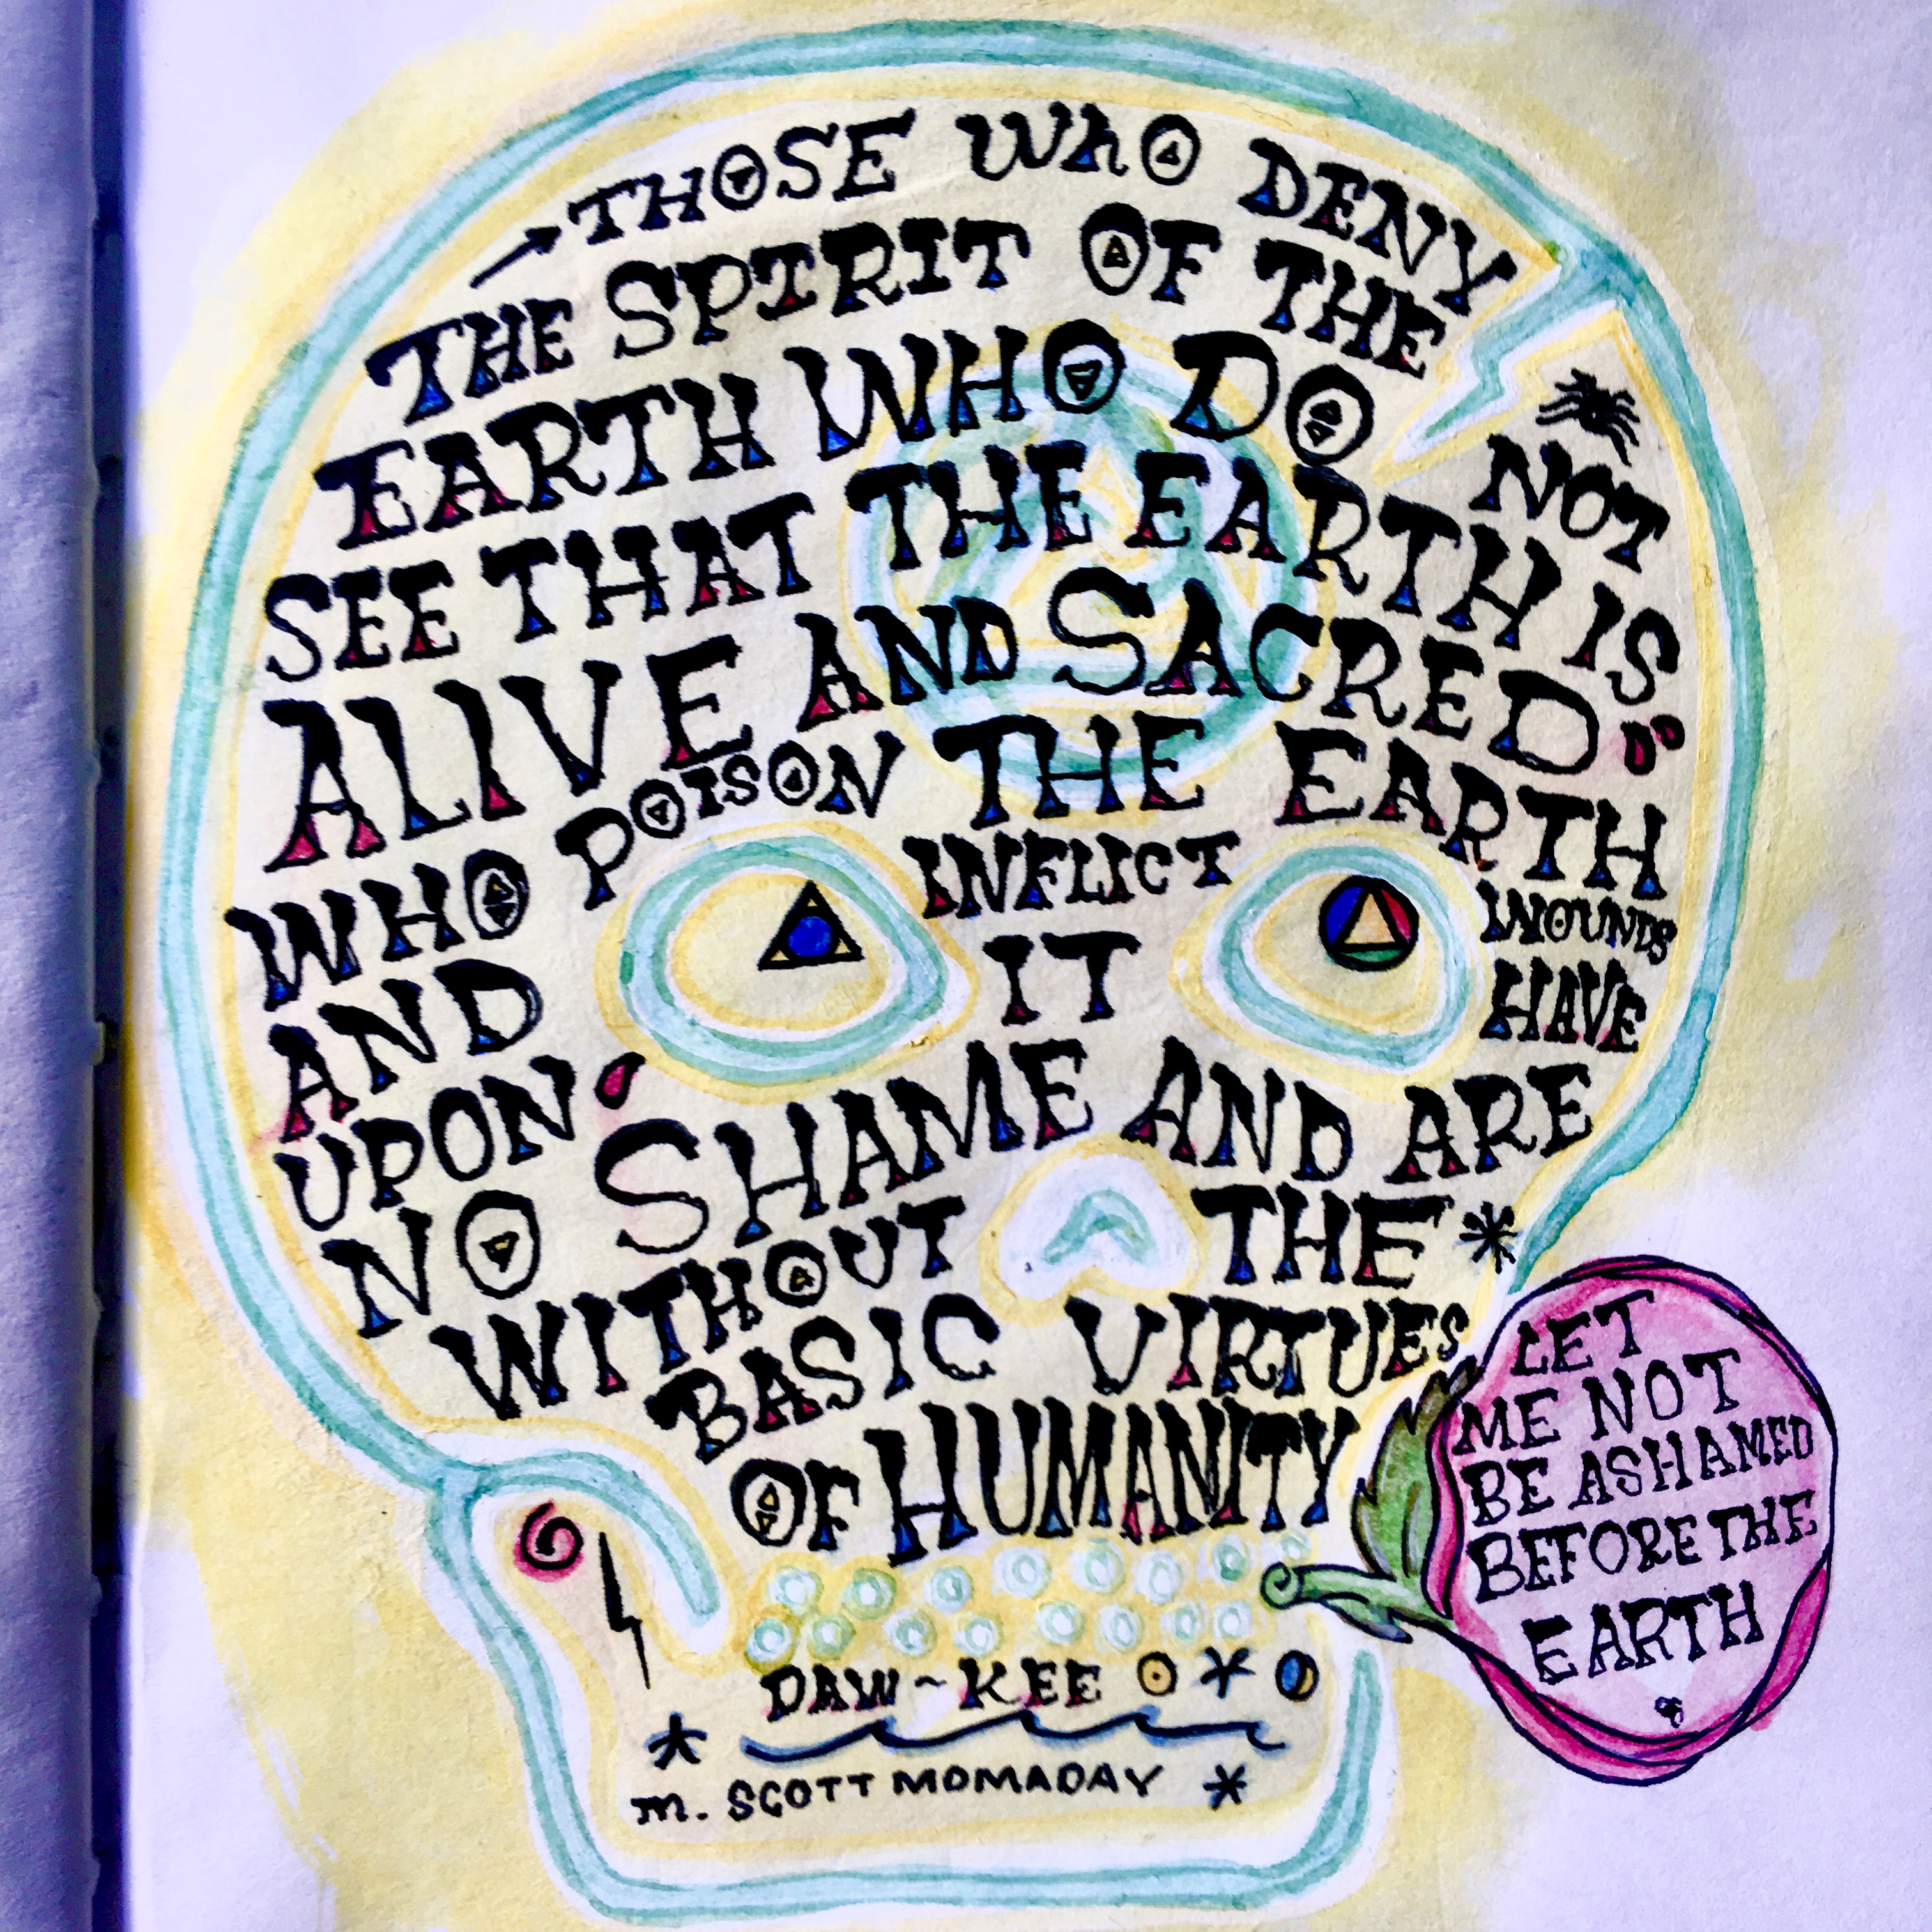 THOSE WHO DENY
THE SPIRIT OF THE
EARTH WHO DO NOT
SEE THAT THE EARTH IS
ALIVE AND SACRED
WHO POISON THE EARTH
AND INFLICT WOUNDS
UPON IT HAVE
NO SHAME AND ARE
WITHOUT THE
BASIC VIRTUES
OF HUMANITY
LET
ME NOT
BE ASHAMED
BEFORE THE
EARTH
DAW~KEE
M. SCOTT MOMADAY